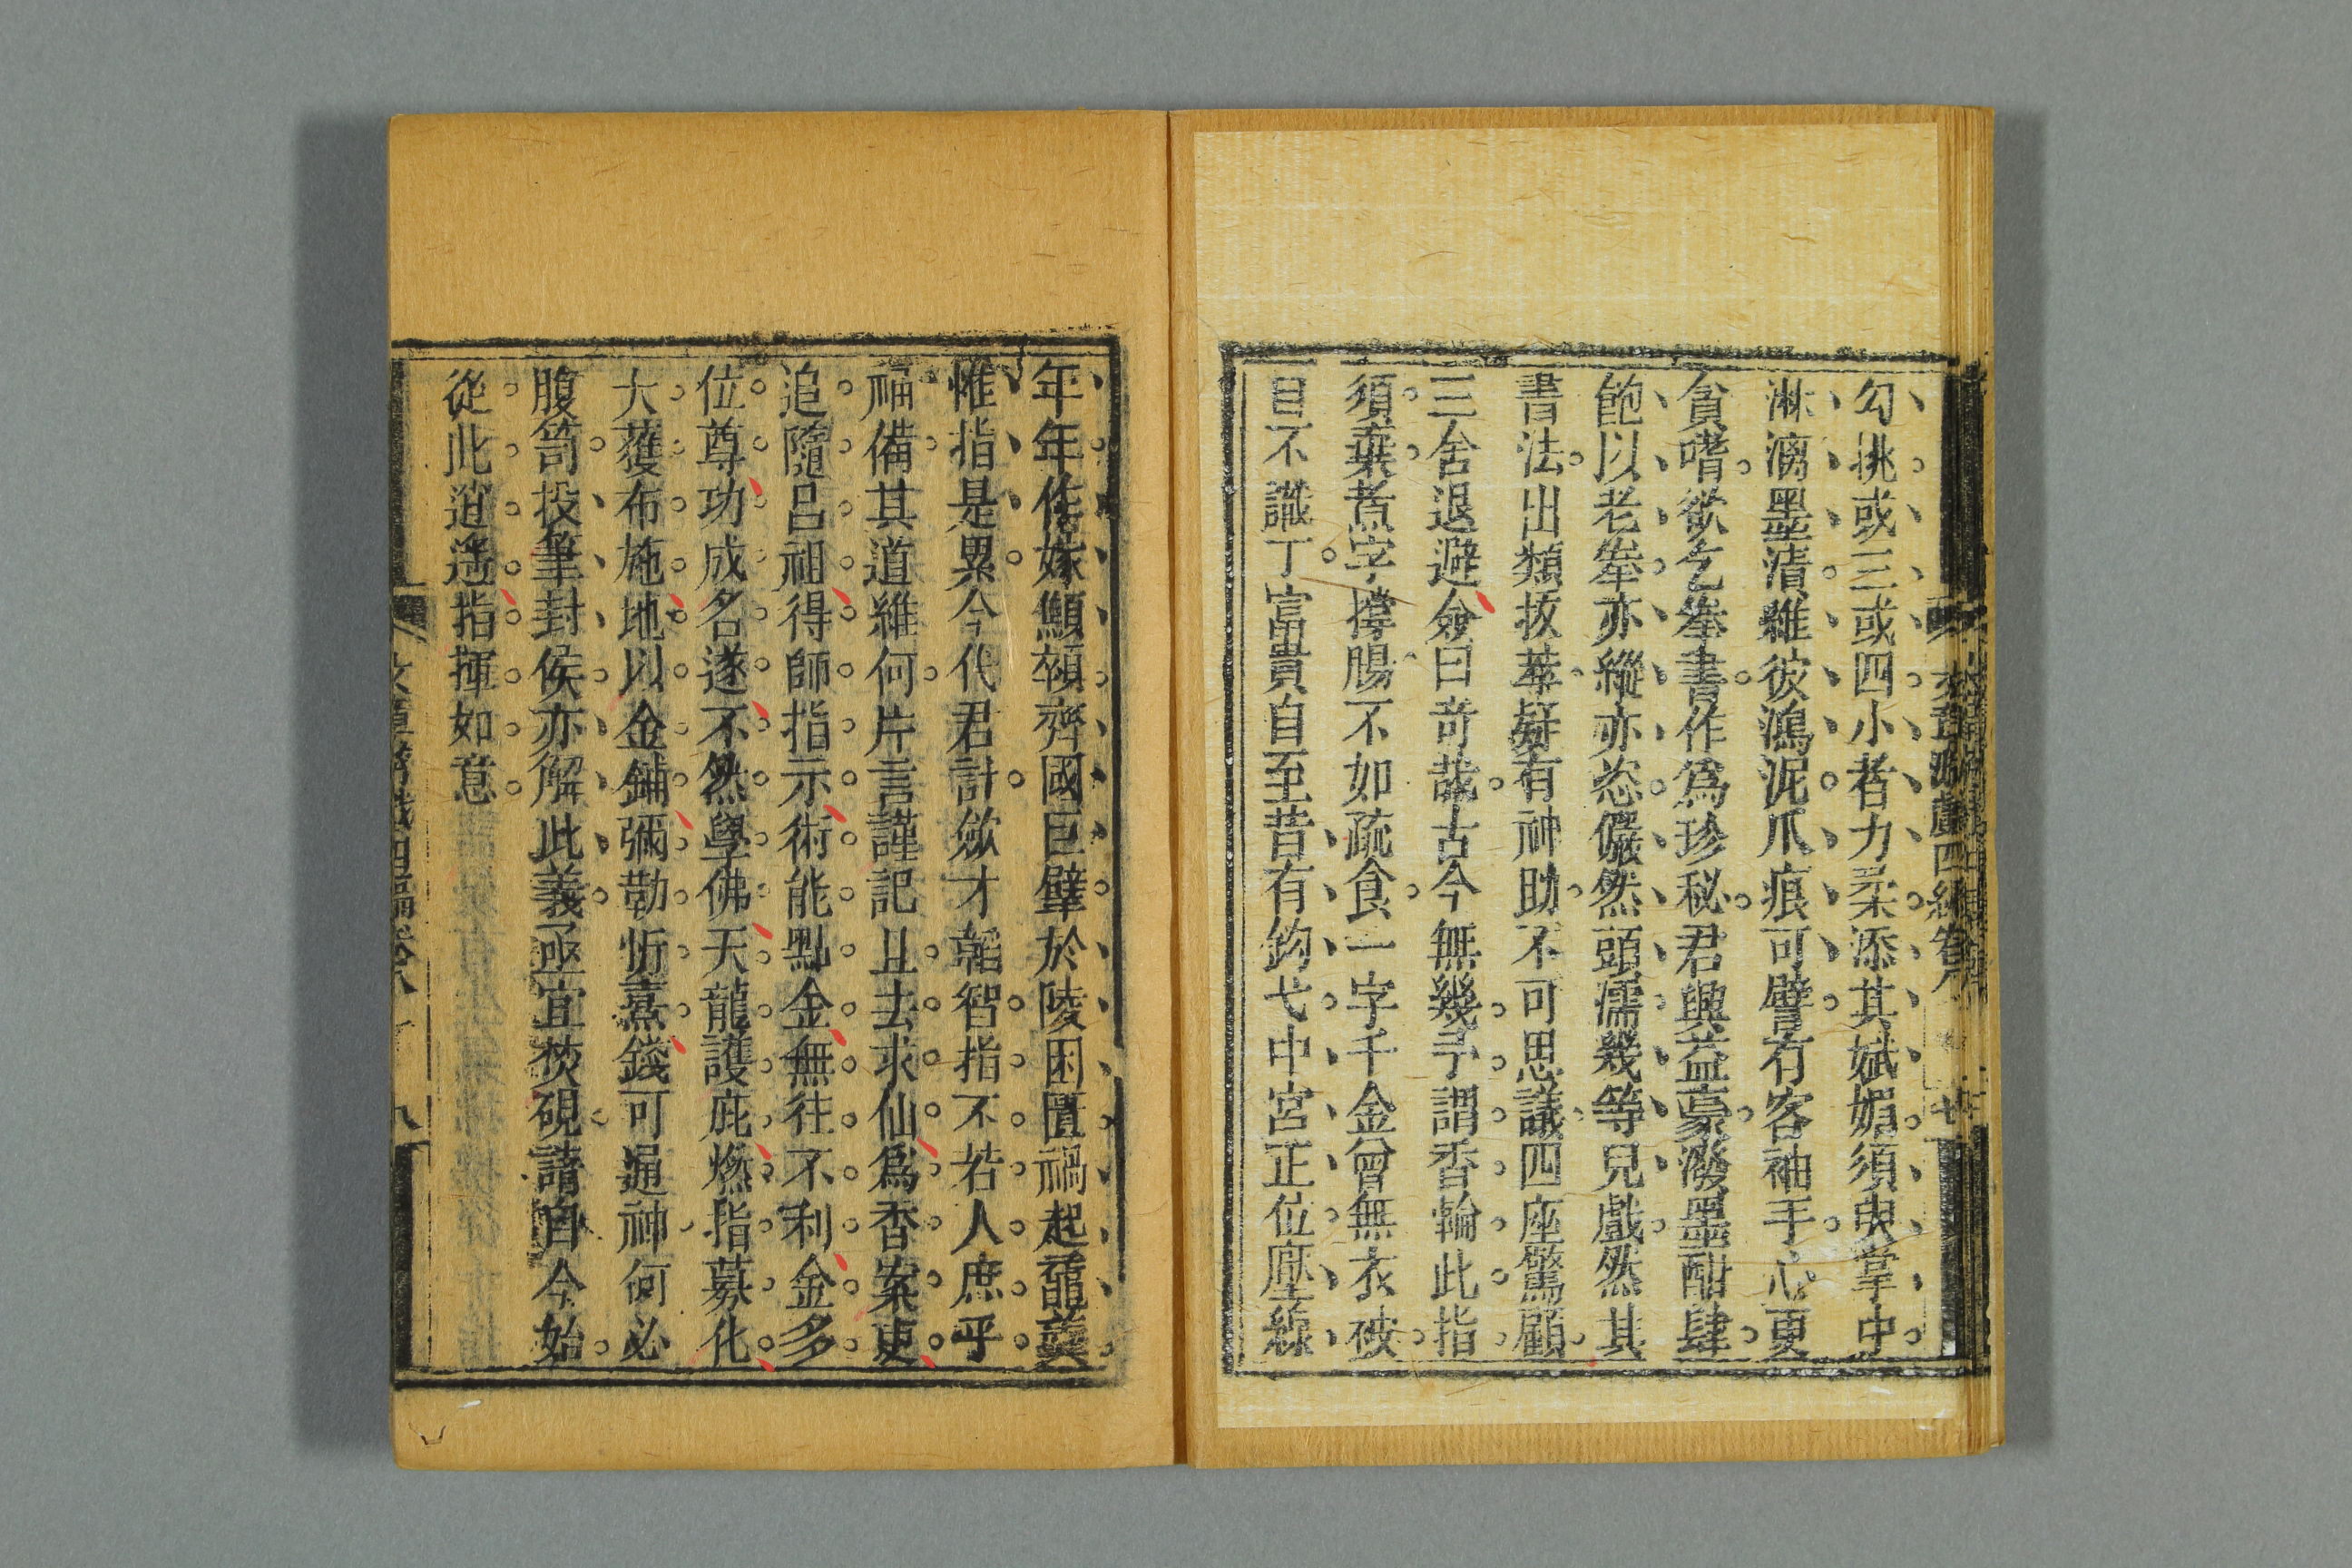 勾挑或三或四小者力柔添其斌媚須臾掌中
淋漓墨漬雖彼鴻泥爪痕可譬有客袖手心更
貪嗜欲乞峚書作為珍秘君與益豪潑墨酣肆
飽以老峚亦縱亦恣儼然頭濡幾等兒戲然其
書法出類拔萃疑有神助不可思議四座驚顧
三舍退避僉曰奇哉古今無幾予謂香輪此指
須棄煮字撐腸不如疏食一字千金曾無衣破
目不識丁富貴自至昔有鉤弋中宮正位壓線
年年作嫁顦顇齊國巨擘於陵困匱禍起黿羹
惟指是累今代君計歛才韜智指不若人庶乎
福備其道維何片言謹記且去求仙為香案吏
追隨呂祖得師指示術能點金無往不利金多
位尊功成名遂不然學佛天龍護庇燃指募化
大獲布施地以金鋪彌勒忻熹錢可通神何必
腹笥投筆封侯亦解此義亟宜焚硯請自今始
從此逍遙指揮如意
文章游戲四編卷八 七
文章游戲四編卷八 八